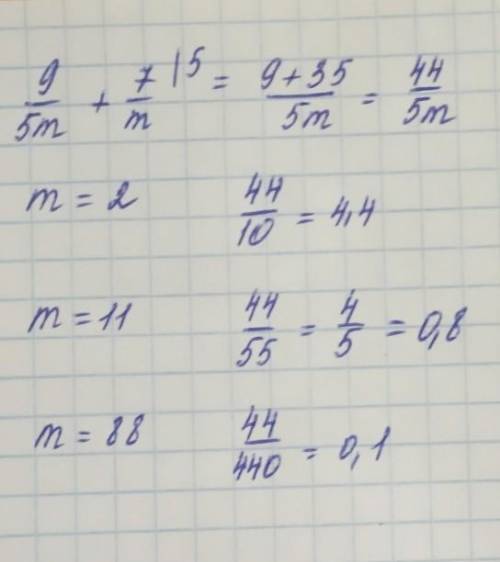 9/5m + 7/m |5 = (9+35)/5m = 44/5m
m = 2 44/10 = 4,4
m = 11 44/55 = 4/5 = 0,8
m = 88 44/440 = 0,1